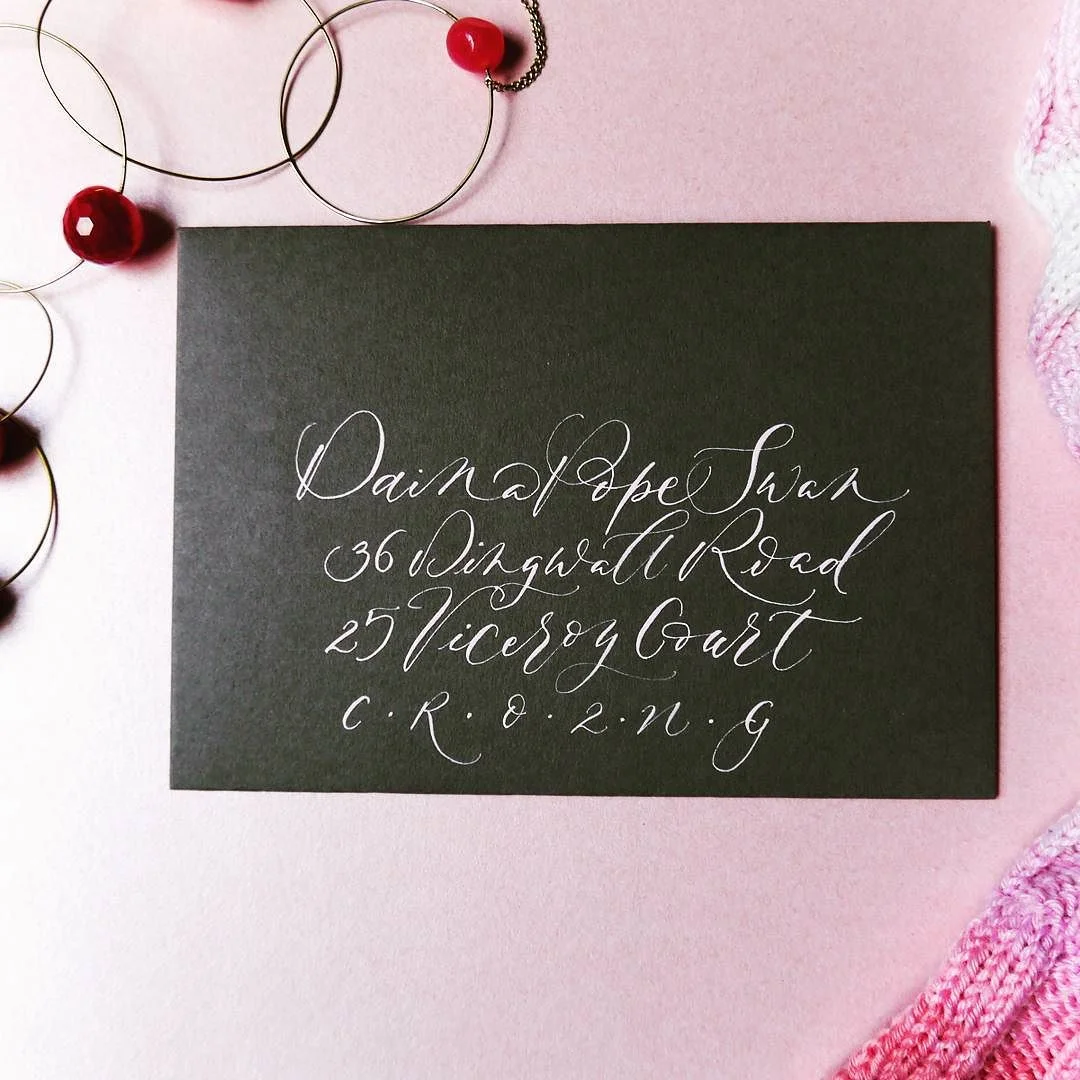 Daina Pope Swan
36 Dingwall Road
25 Viceroy Court
C · R · 0 · 2 · N · G